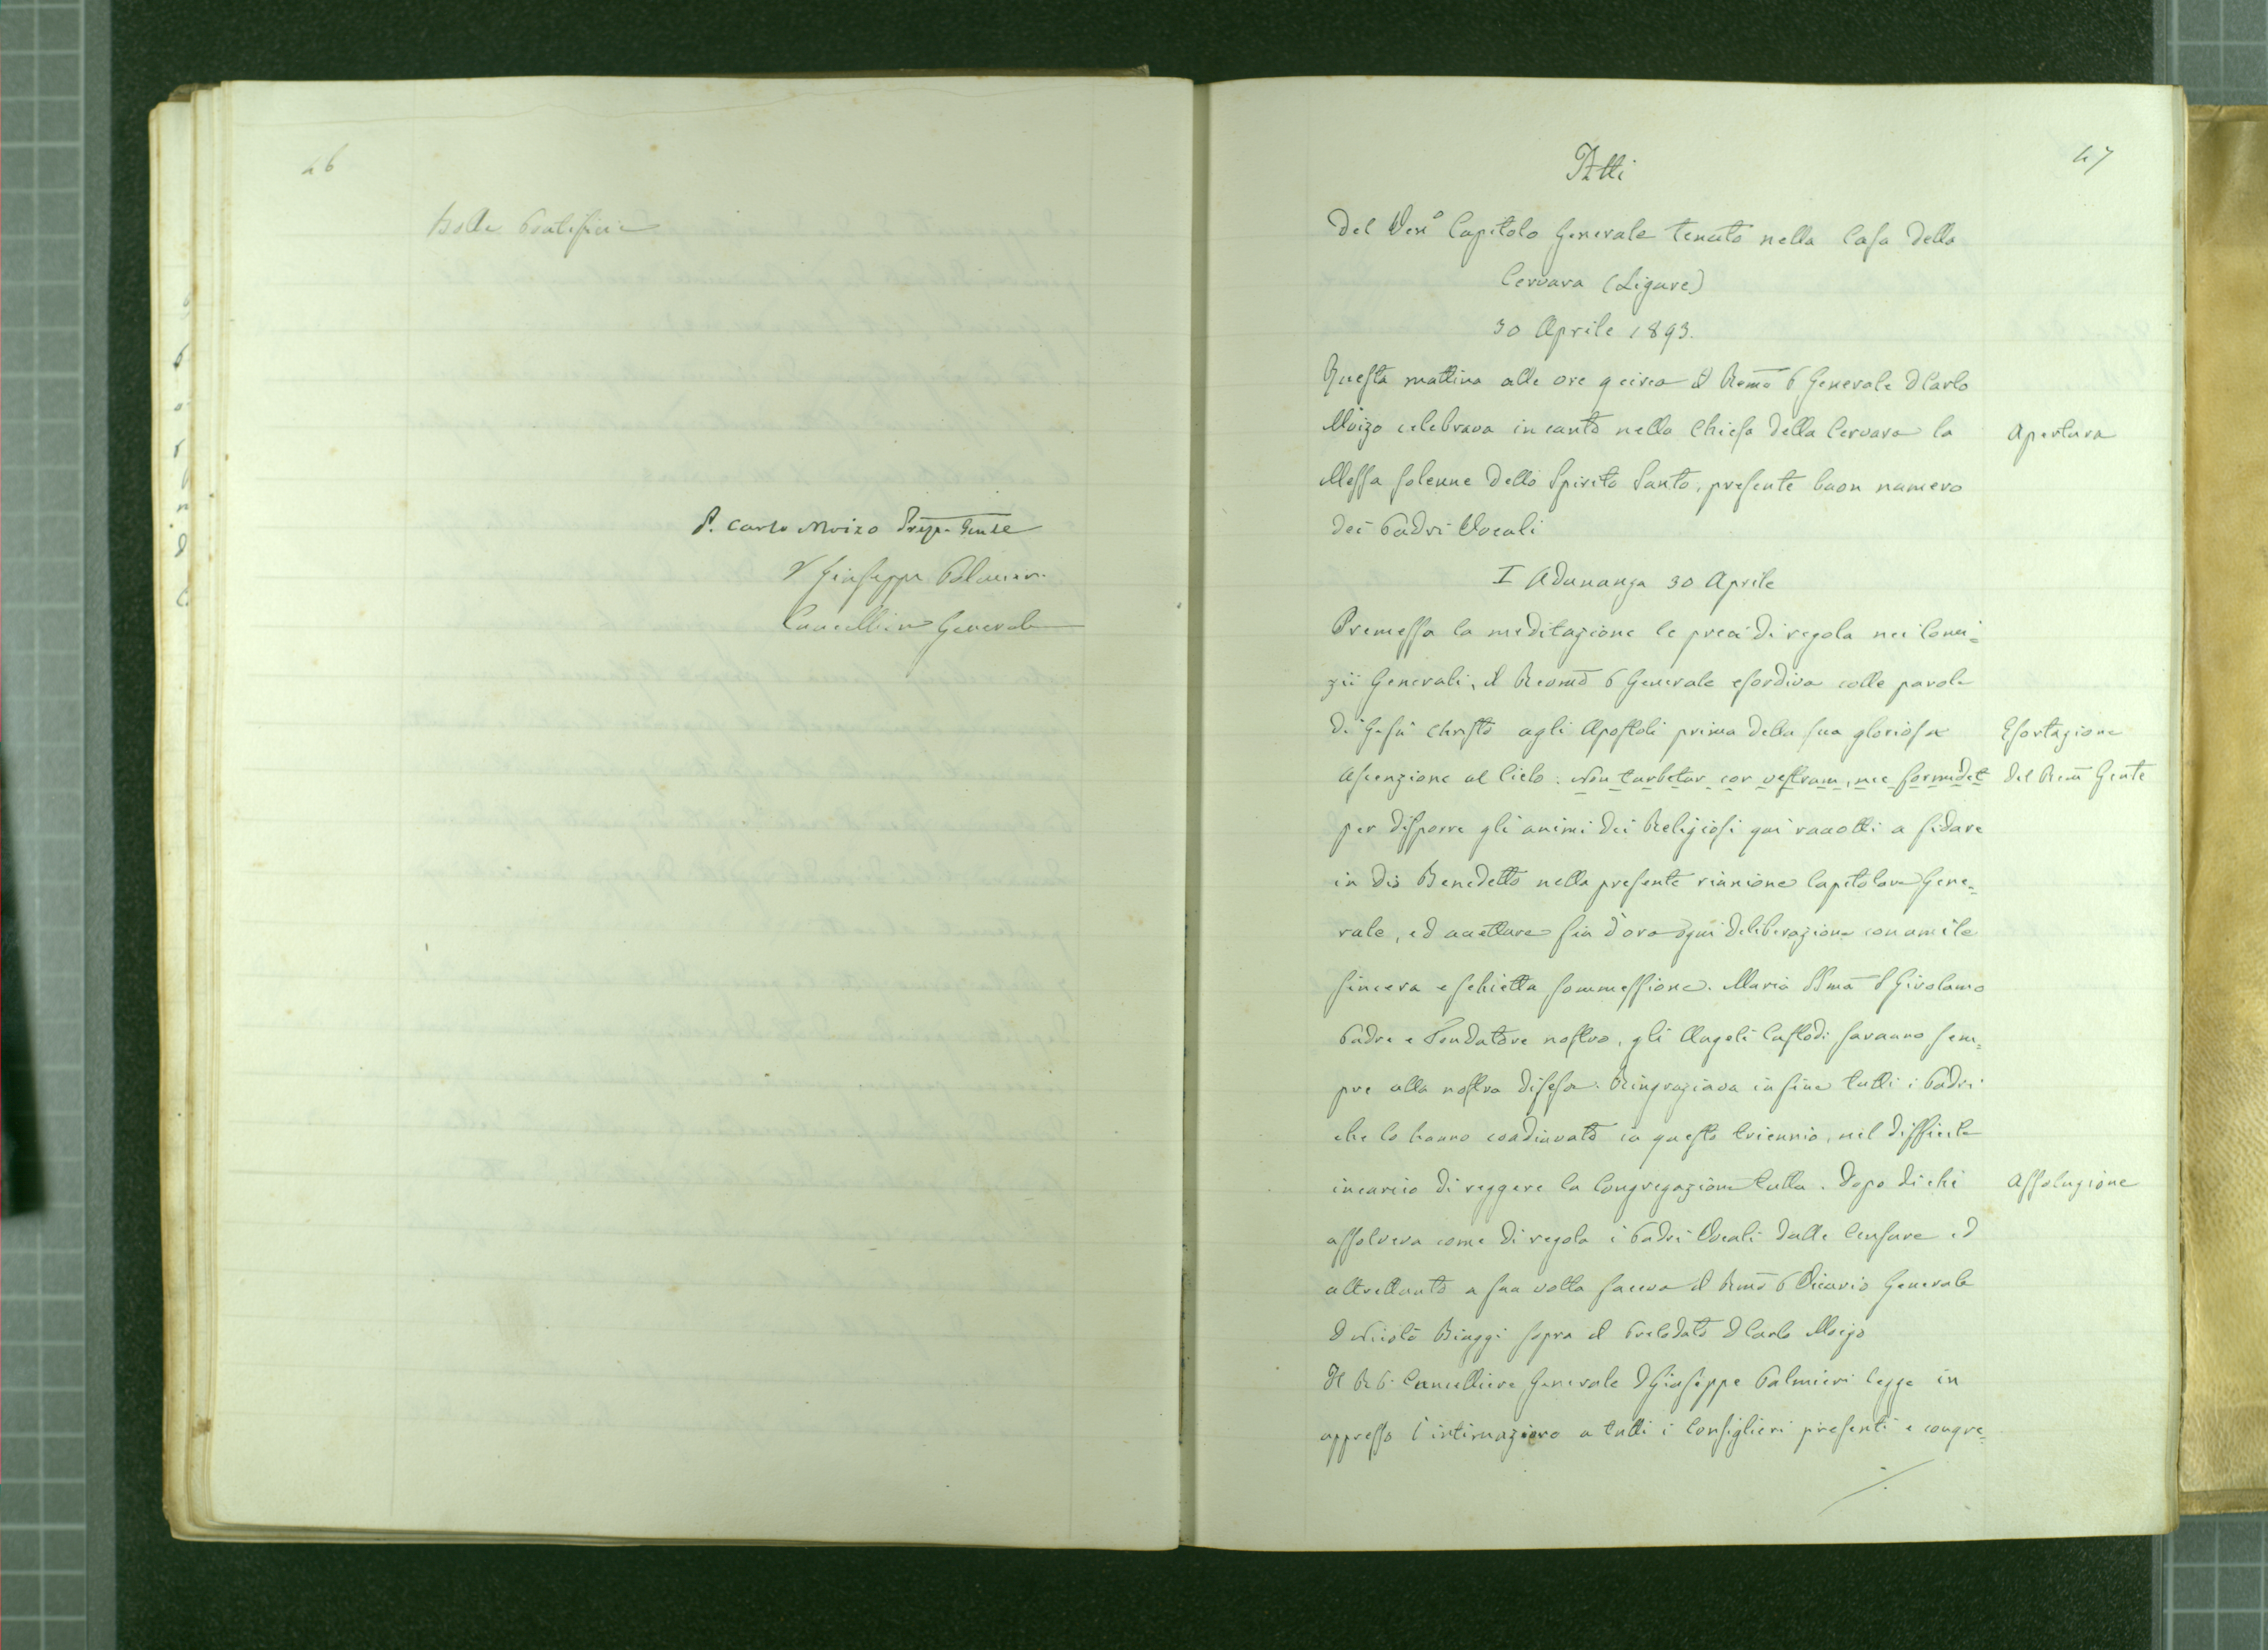 46
Bolle Pontificie
P. Carlo Moizo Prep. Gnle
D Giuseppe Palmieri
Cancelliere Generale
47
Atti
Del Ven.o Capitolo Generale tenuto nella Casa della
Cervara (Ligure)
30 Aprile 1893.
Questa mattina alle ore 9 circa il Remo P Generale D Carlo
Moizo celebrava in canto nella Chiesa della Cervara la
Apertura
Messa solenne dello Spirito Santo, presente buon numero
dei Padri Vocali
I Adunanza 30 Aprile
Premessa la meditazione le preci di regola nei Comi=
zii Generali, il Revmo P Generale esordiva colle parole
di Gesù Christo agli Apostoli prima della sua gloriosa
Esortazione
Ascenzione al Cielo. Non turbetur cor vestrum, nec formidet
del Rem Gnle
per disporre gli animi dei Religiosi qui raccolti a fidare
in Dio Benedetto nella presente riunione Capitolare Gene=
rale, ed accettare fin d'ora ogni deliberazione con umile
sincera e schietta sommessione. Maria SSma S Girolamo
Padre e Fondatore nostro, gli Angeli Custodi saranno sem=
pre alla nostra difesa. Ringraziava in fine tutti i Padri
che lo hanno coadiuvato in questo triennio, nel difficile
incarico di reggere la Congregazione tutta. Dopo di chè
Assoluzione
assolveva come di regola i Padri Vocali dalle Censure ed
altrettanto a sua volta faceva il Rmo P Vicario Generale
D Nicolò Biaggi sopra il Prelodato D Carlo Moizo
Il R P. Cancelliere Generale D Giuseppe Palmieri legge in
appresso l'intimazione a tutti i Consiglieri presenti e congre=
./.